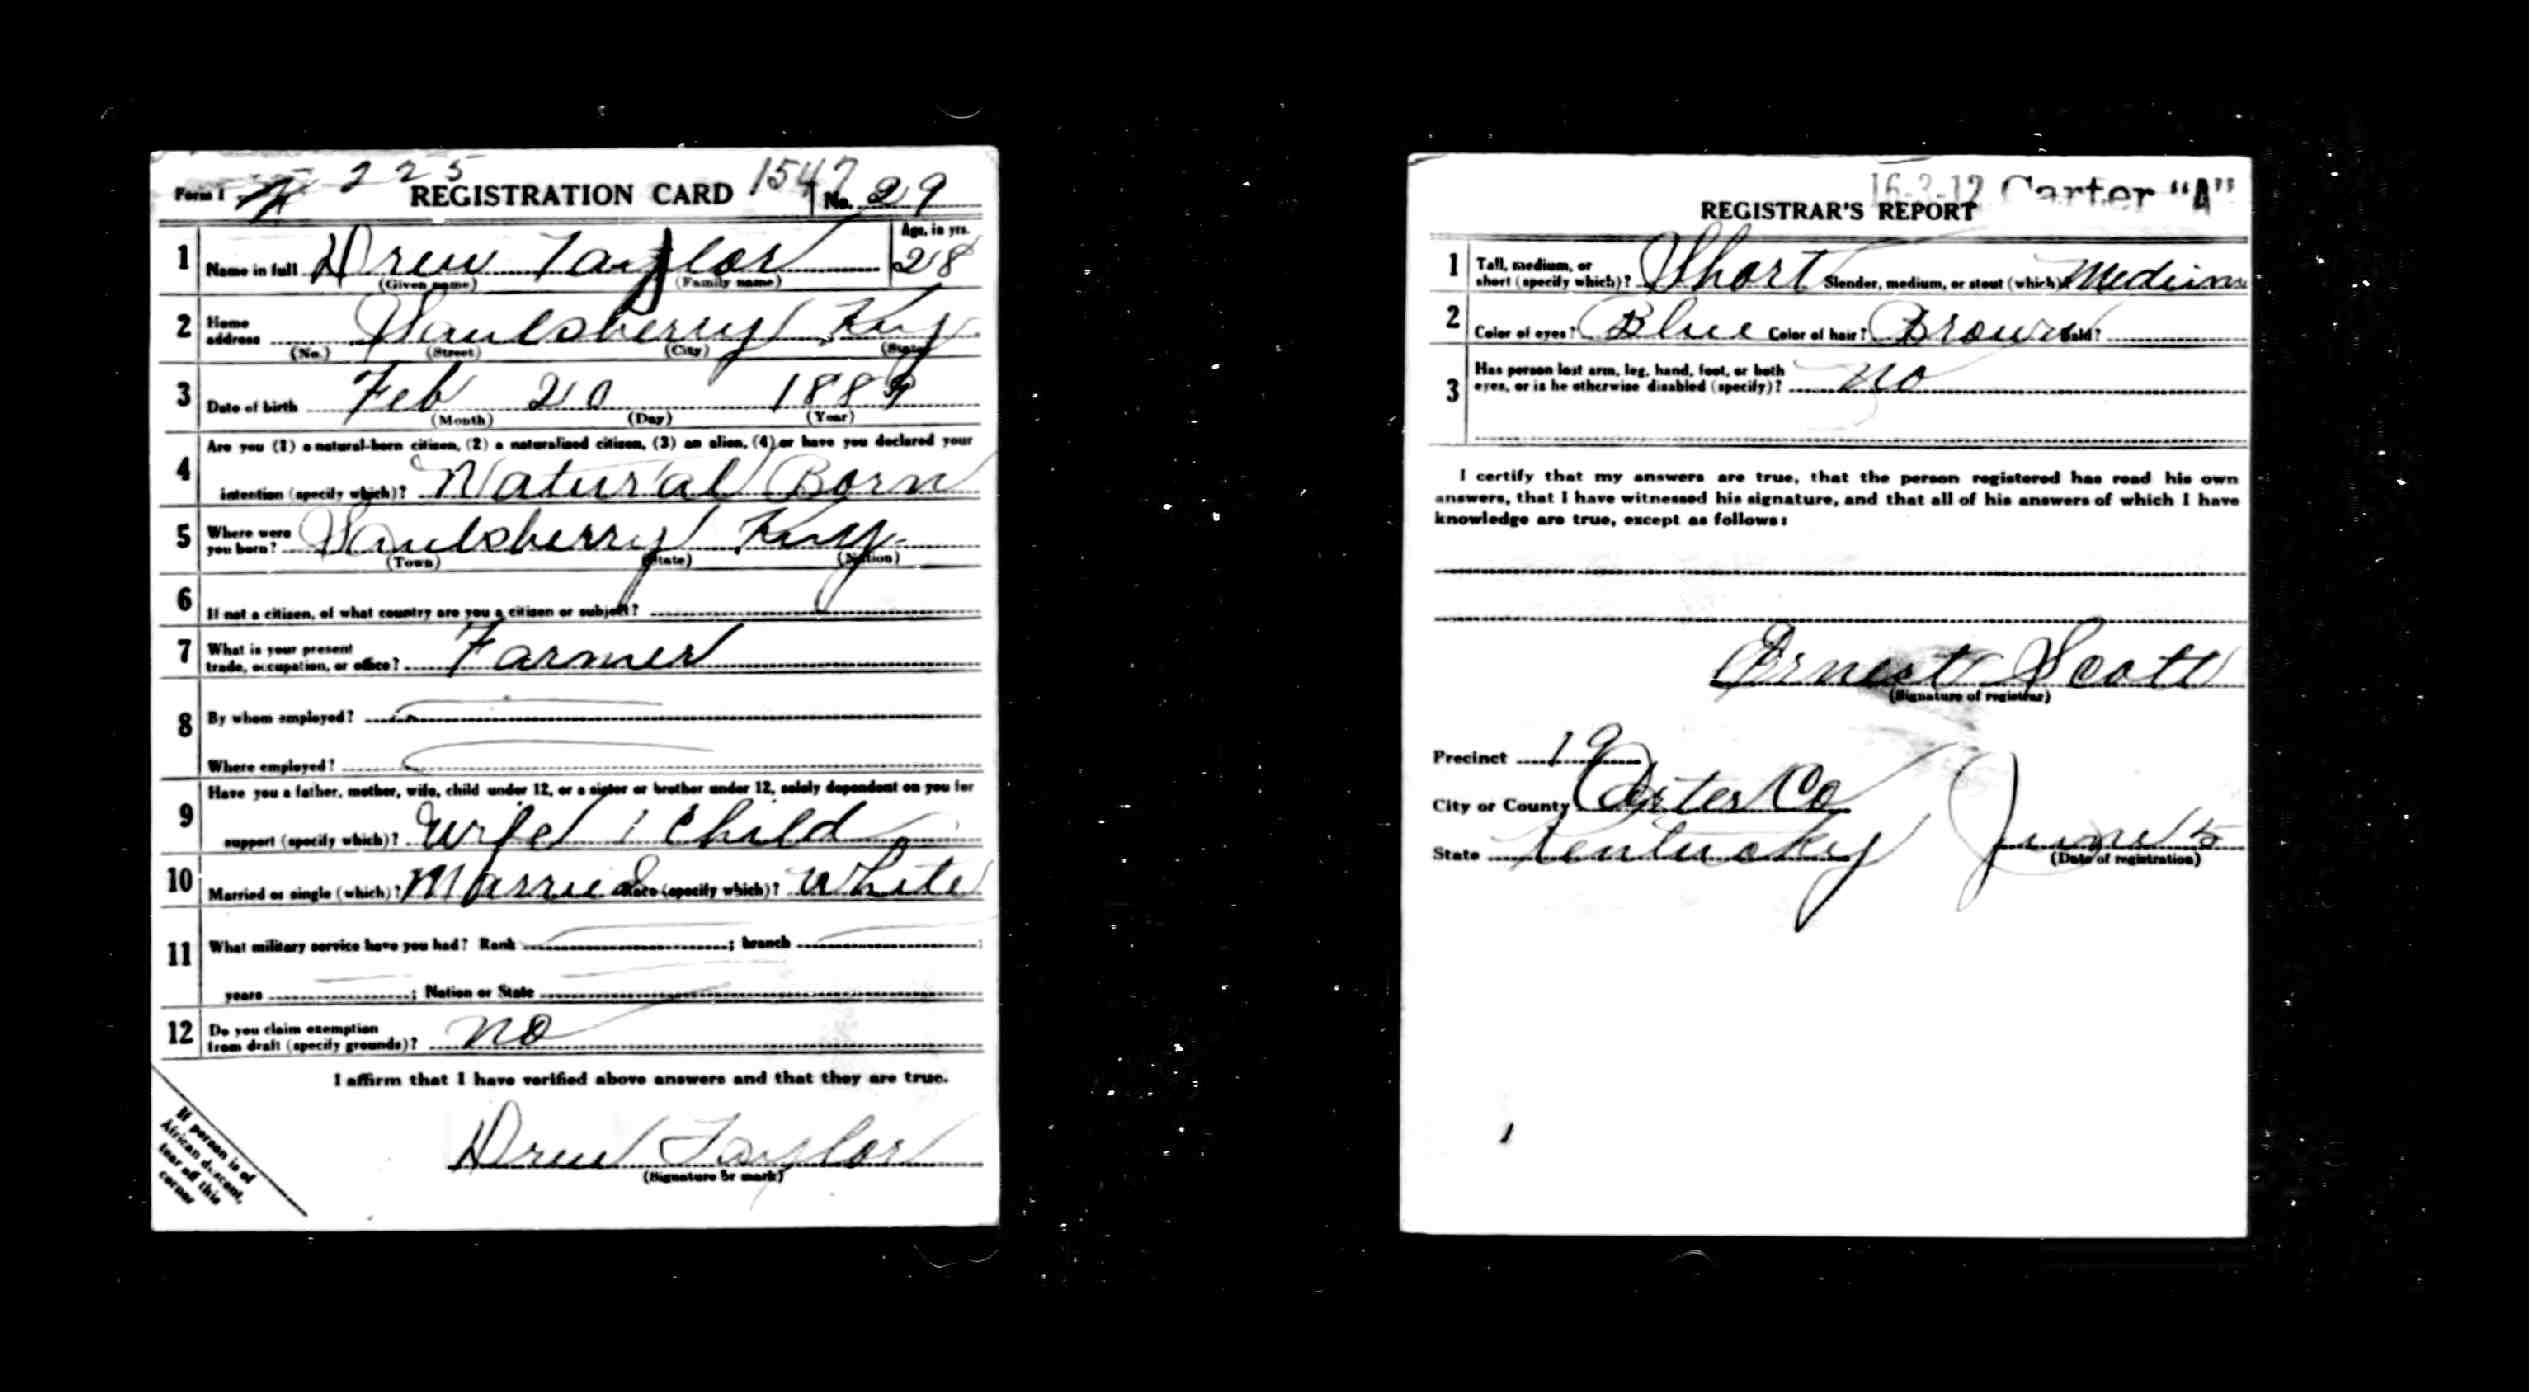 Form 1 225 REGISTRATION CARD 1547 No. 29
1 Name in full Drew Taylor Age, in yrs. 28
(Given name) (Family name)
2 Home address Saulsberry Ky
(No.) (Street) (City) (State)
3 Date of birth Feb 20 1889
(Month) (Day) (Year)
4 Are you (1) a natural-born citizen, (2) a naturalized citizen, (3) an alien, (4) or have you declared your
intention (specify which)? Natural Born
5 Where were you born? Saulsberry Ky.
(Town) (State) (Nation)
6 If not a citizen, of what country are you a citizen or subject?
7 What is your present
trade, occupation, or office? Farmer
8 By whom employed?
Where employed?
9 Have you a father, mother, wife, child under 12, or a sister or brother under 12, solely dependent on you for
support (specify which)? Wife 1 Child
10 Married or single (which)? Married Race (specify which)? White
11 What military service have you had? Rank ; branch ;
years ; Nation or State
12 Do you claim exemption
from draft (specify grounds)? no
I affirm that I have verified above answers and that they are true.
Drew Taylor
(Signature or mark)
If person is of
African descent,
tear off this
corner
16-3-12 Carter "A"
REGISTRAR'S REPORT
1 Tall, medium, or
short (specify which)? Short Slender, medium, or stout (which)? Medium
2 Color of eyes? Blue Color of hair? Brown Bald?
3 Has person lost arm, leg, hand, foot, or both
eyes, or is he otherwise disabled (specify)? no
I certify that my answers are true, that the person registered has read his own
answers, that I have witnessed his signature, and that all of his answers of which I have
knowledge are true, except as follows:
Ernest Scott
(Signature of registrar)
Precinct 19
City or County Carter Co
State Kentucky June 5
(Date of registration)